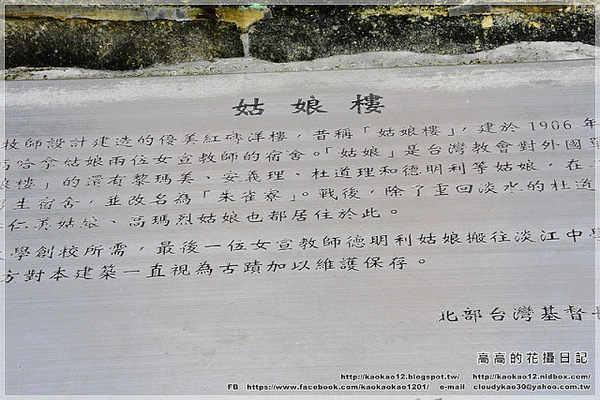 姑娘樓
技師設計建造的優美紅磚洋樓，昔稱「姑娘樓」，建於1906年
哈拿姑娘兩位女宣教師的宿舍。「姑娘」是台灣教會對外國單
樓」的還有黎瑪美、安義理、杜道理和德明利等姑娘，在
生宿舍，並改名為「朱雀寮」。戰後，除了重回淡水的杜道
仁美姑娘、高瑪烈姑娘也都居住於此。
學創校所需，最後一位女宣教師德明利姑娘搬往淡江中學
方對本建築一直視為古蹟加以維護保存。
北部台灣基督長
高高的花攝日記
http://kaokao12.blogspot.tw/ http://kaokao12.nidbox.com/
FB：https://www.facebook.com/kaokaokao1201/ e-mail：cloudykao30@yahoo.com.tw